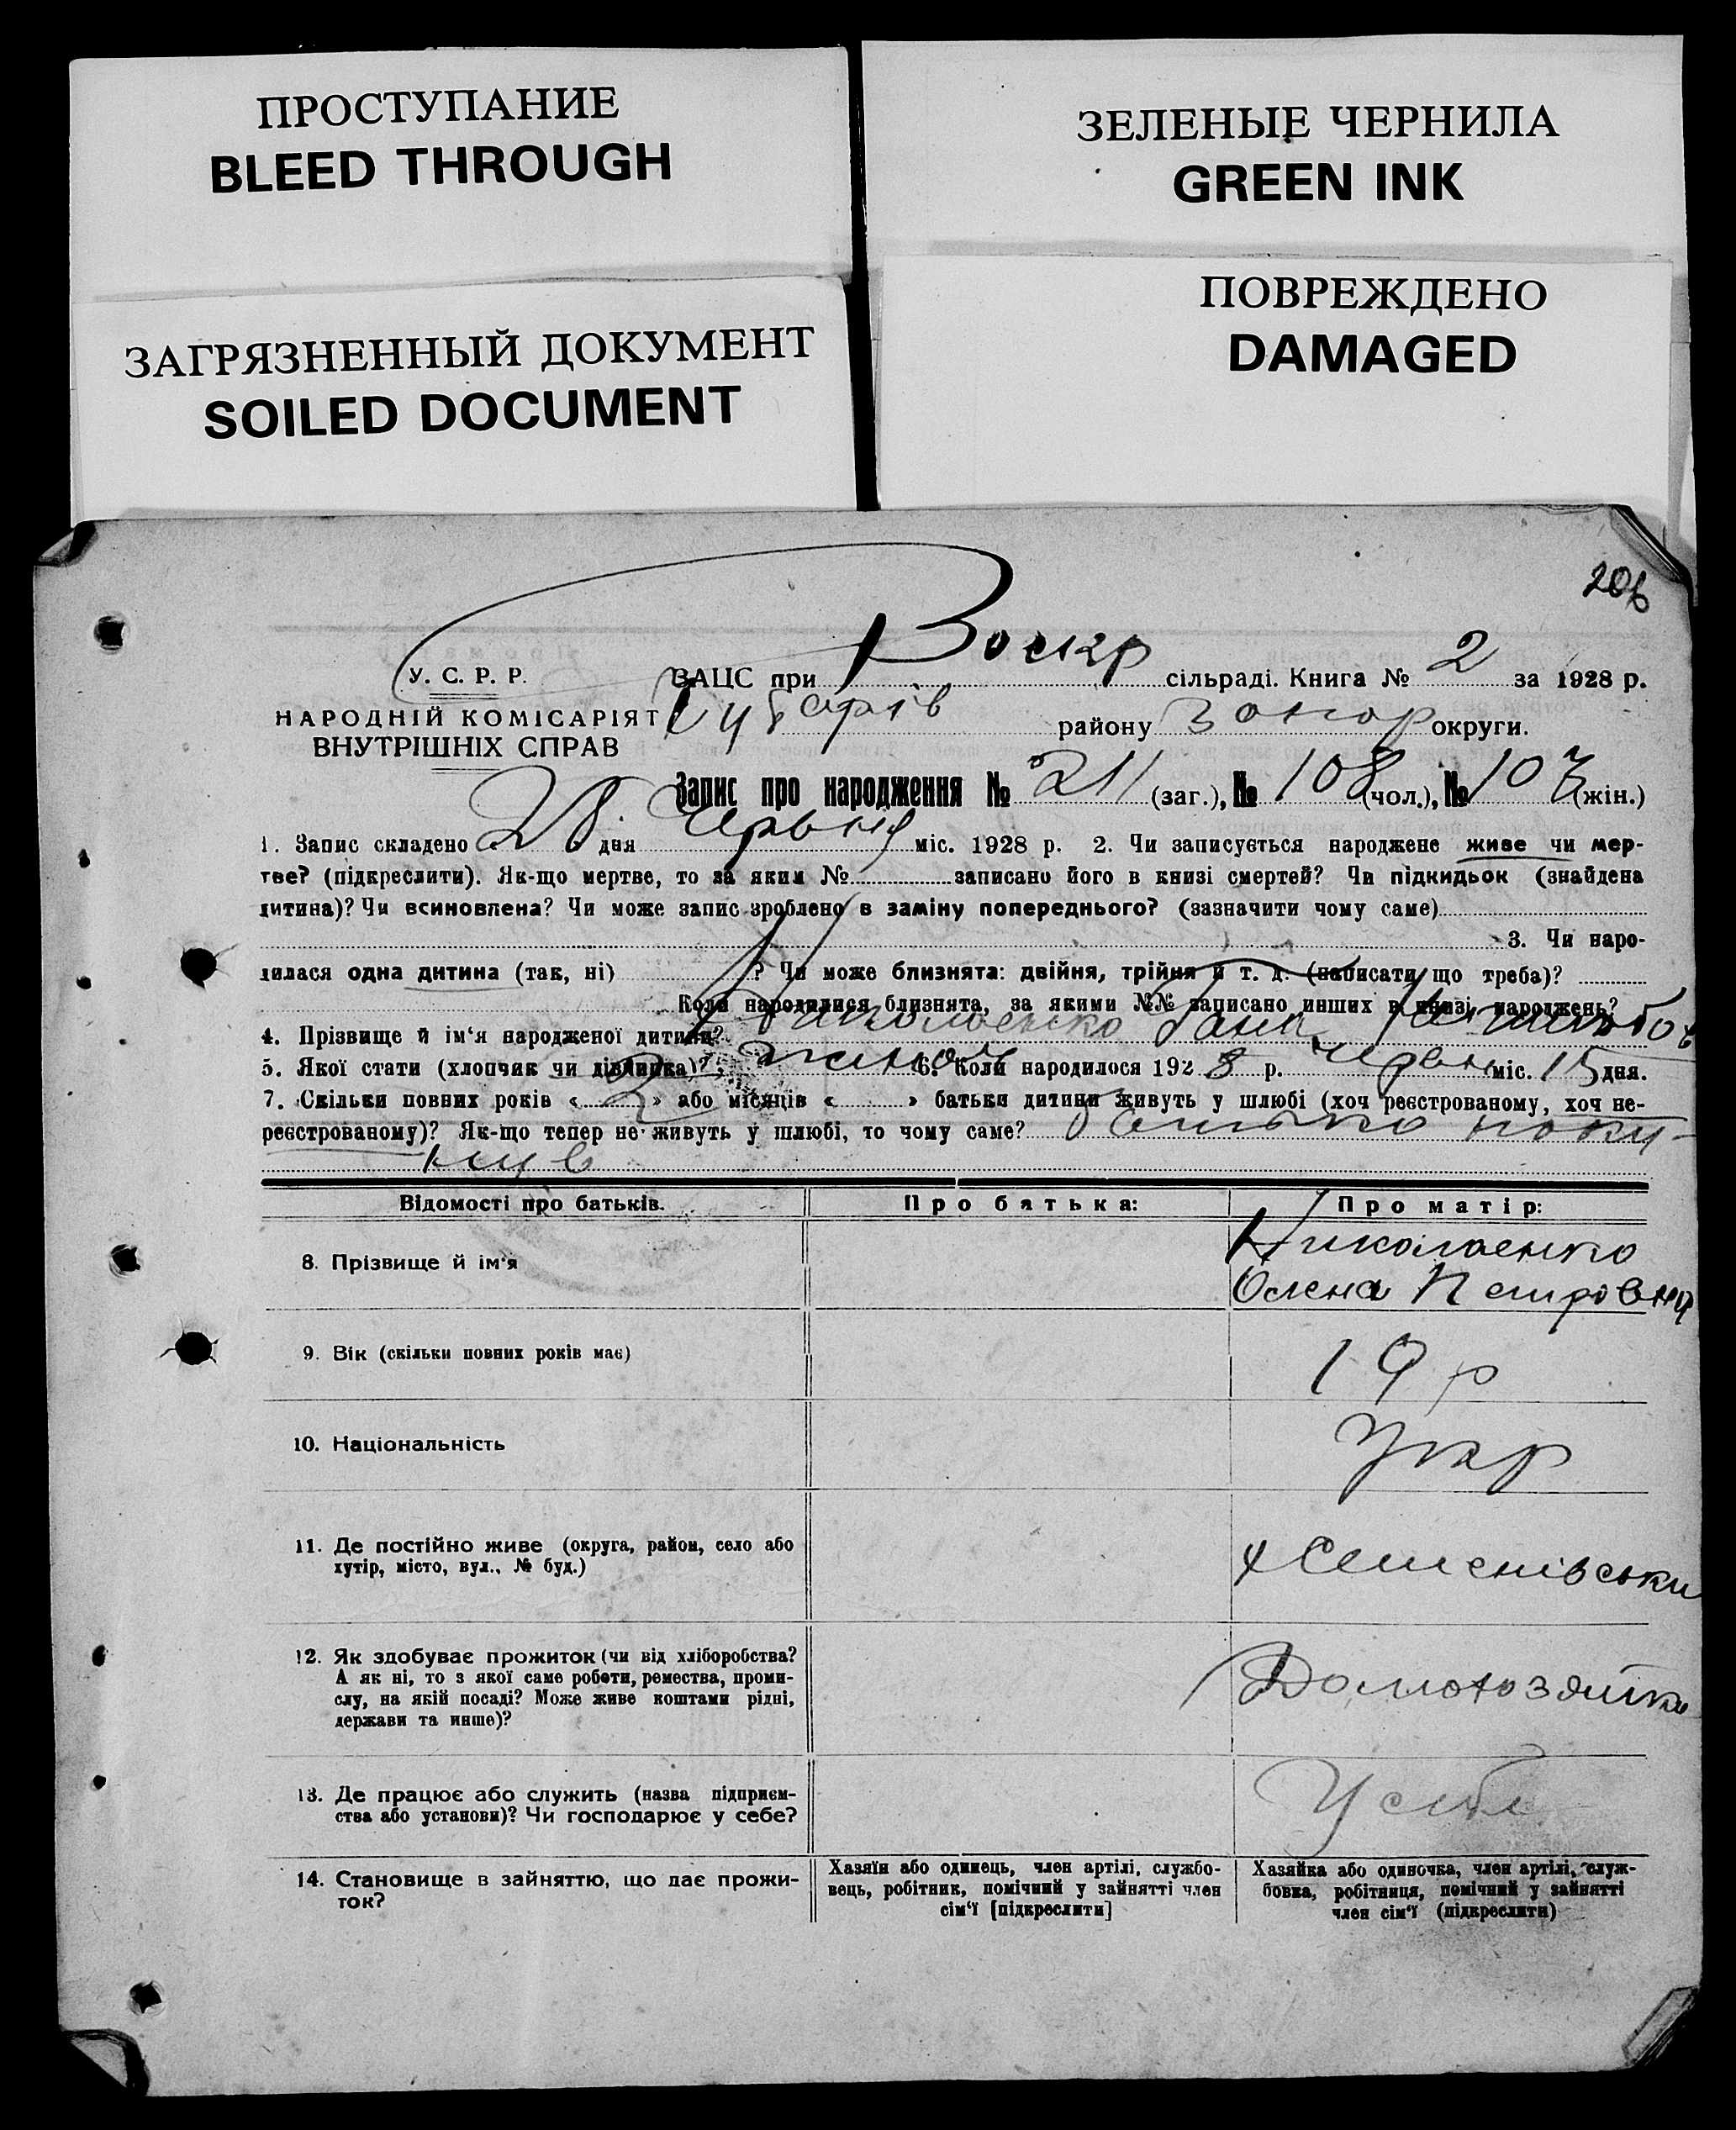 ПРОСТУПАНИЕ
BLEED THROUGH
ЗЕЛЕНЫЕ ЧЕРНИЛА
GREEN INK
ЗАГРЯЗНЕННЫЙ ДОКУМЕНТ
SOILED DOCUMENT
ПОВРЕЖДЕНО
DAMAGED
206
У. С. Р. Р.
НАРОДНІЙ КОМІСАРІЯТ
ВНУТРІШНІХ СПРАВ
ЗАЦС при Воскр сільраді. Книга № 2 за 1928 р.
району Запор округи.
Запис про народження № 211 (заг.), № 108 (чол.), № 103 (жін.)
1. Запис складено 28 дня червня міс. 1928 р. 2. Чи записується народжене живе чи мер-
тве? (підкреслити). Як-що мертве, то за яким № записано його в книзі смертей? Чи підкидьок (знайдена
дитина)? Чи всиновлена? Чи може запис зроблено в заміну попереднього? (зазначити чому саме)
3. Чи наро-
дилася одна дитина (так, ні) ? Чи може близнята: двійня, трійня й т. д. (написати що треба)?
Коли народилися близнята, за якими №№ записано инших в книзі народжень?
4. Прізвище й ім'я народженої дитини? Николаенко
5. Якої стати (хлопчик чи дівчинка)? жіноч 6. Коли народилося 1928 р. червня міс. 15 дня.
7. Скільки повних років « 2 » або місяців « » батьки дитини живуть у шлюбі (хоч реєстрованому, хоч не-
реєстрованому)? Як-що тепер не живуть у шлюбі, то чому саме? батько поки-
нув
Відомості про батьків.
Про батька:
Про матір:
8. Прізвище й ім'я
Николаенко
Олена Петровна
9. Вік (скільки повних років має)
19 р
10. Національність
Укр
11. Де постійно живе (округа, район, село або
хутір, місто, вул., № буд.)
х Семенівськи
12. Як здобуває прожиток (чи від хліборобства?
А як ні, то з якої саме роботи, ремества, проми-
слу, на якій посаді? Може живе коштами рідні,
держави та инше)?
Домохозяйка
13. Де працює або служить (назва підприєм-
ства або установи)? Чи господарює у себе?
У себе
14. Становище в зайняттю, що дає прожи-
ток?
Хазяїн або одинець, член артілі, службо-
вець, робітник, помічний у зайнятті член
сім'ї [підкреслити]
Хазяйка або одиночка, член артілі, служ-
бовка, робітниця, помічний у зайнятті
член сім'ї (підкреслити)